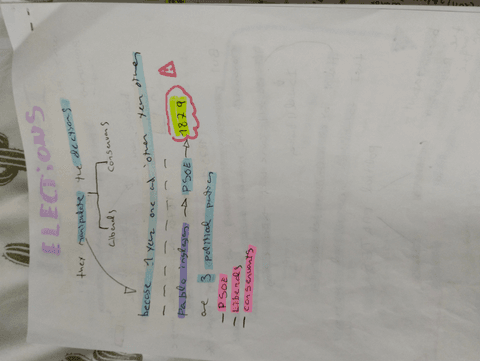 ELECTIONS
they manipulate the elections
Liberals conservans
because 1 year one and other year other
Pablo iglesias → PSOE → 1879
are 3 political parties
- PSOE
- Liberals
- conservants